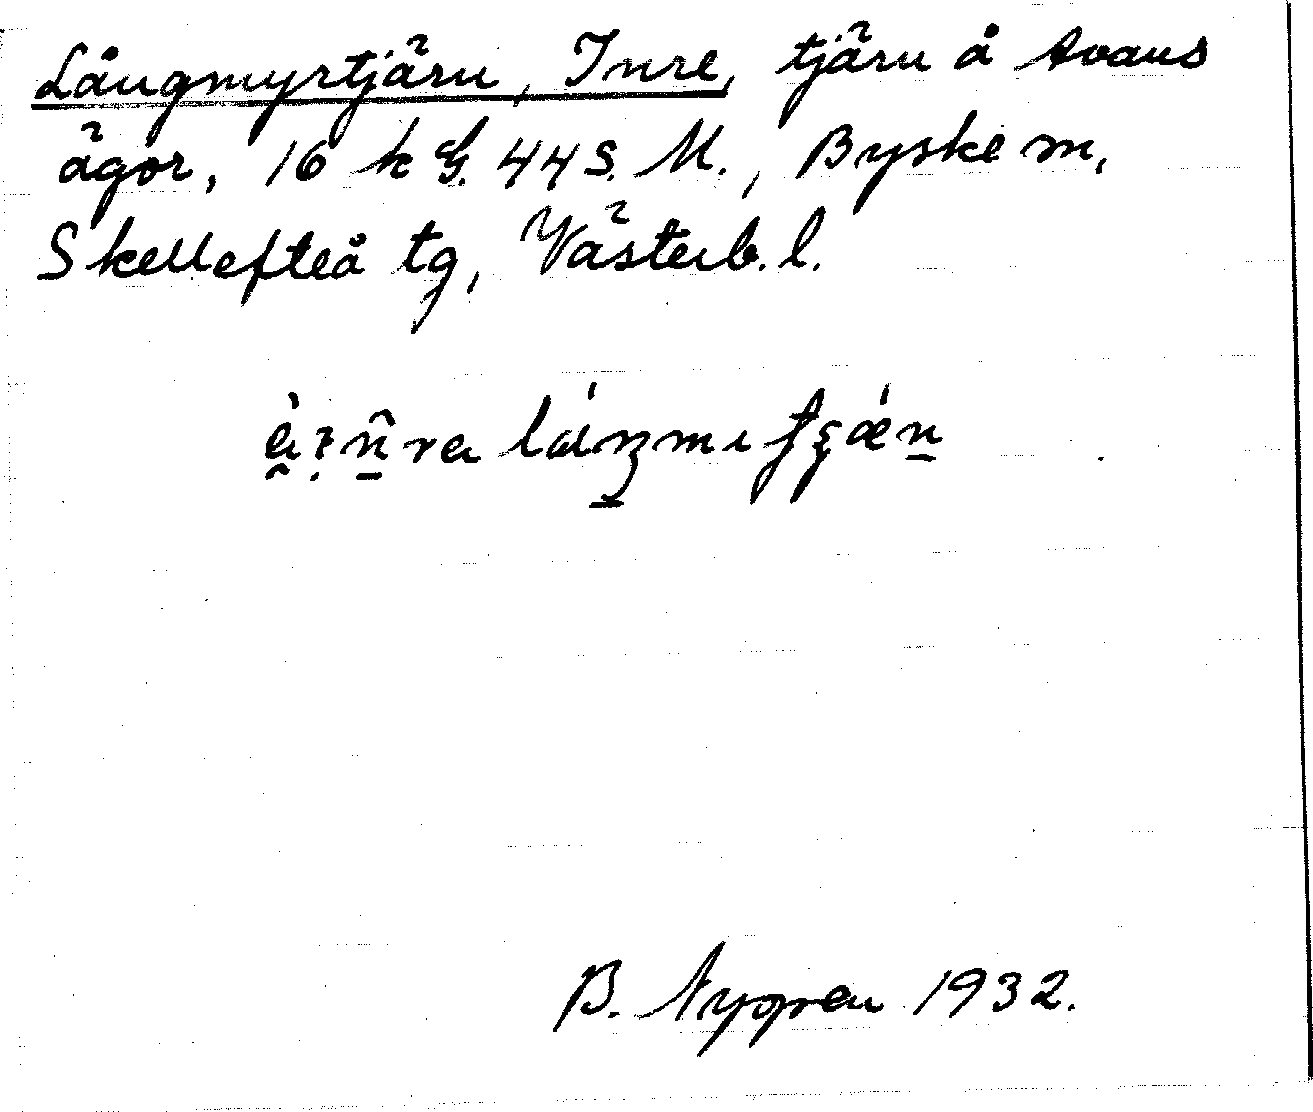 Långmyrtjärn, Inre, tjärn å Avans
ägor, 16 k G. 44 S. M., Byske sn,
Skellefteå tg, Västerb. l.
B. Nygren 1932.